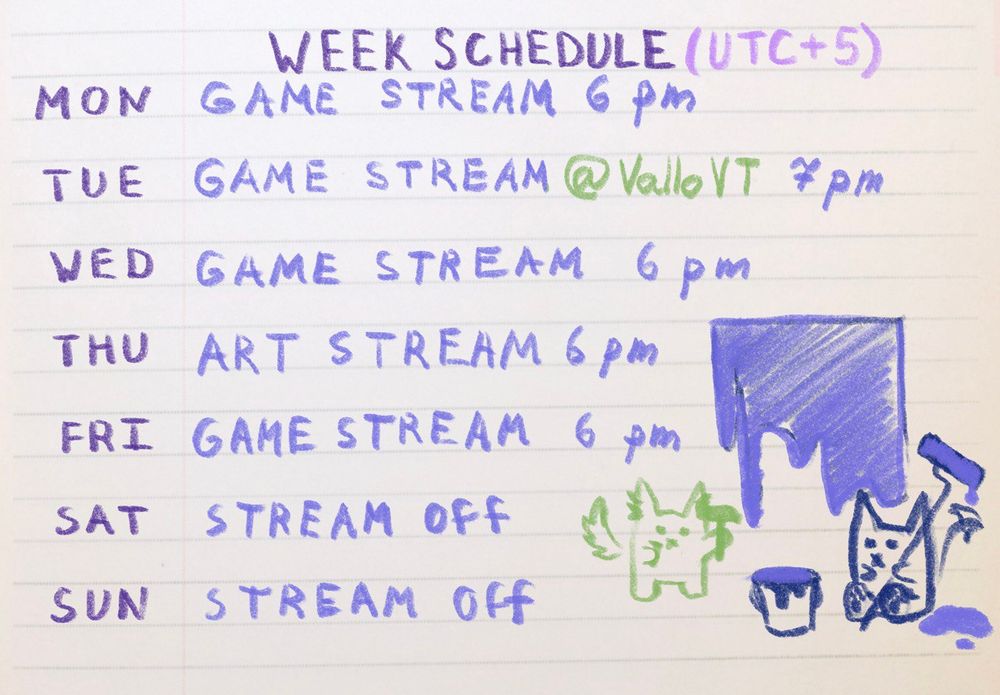 WEEK SCHEDULE (UTC+5)
MON GAME STREAM 6 pm
TUE GAME STREAM @ValloVT 7pm
WED GAME STREAM 6 pm
THU ART STREAM 6 pm
FRI GAME STREAM 6 pm
SAT STREAM OFF
SUN STREAM OFF